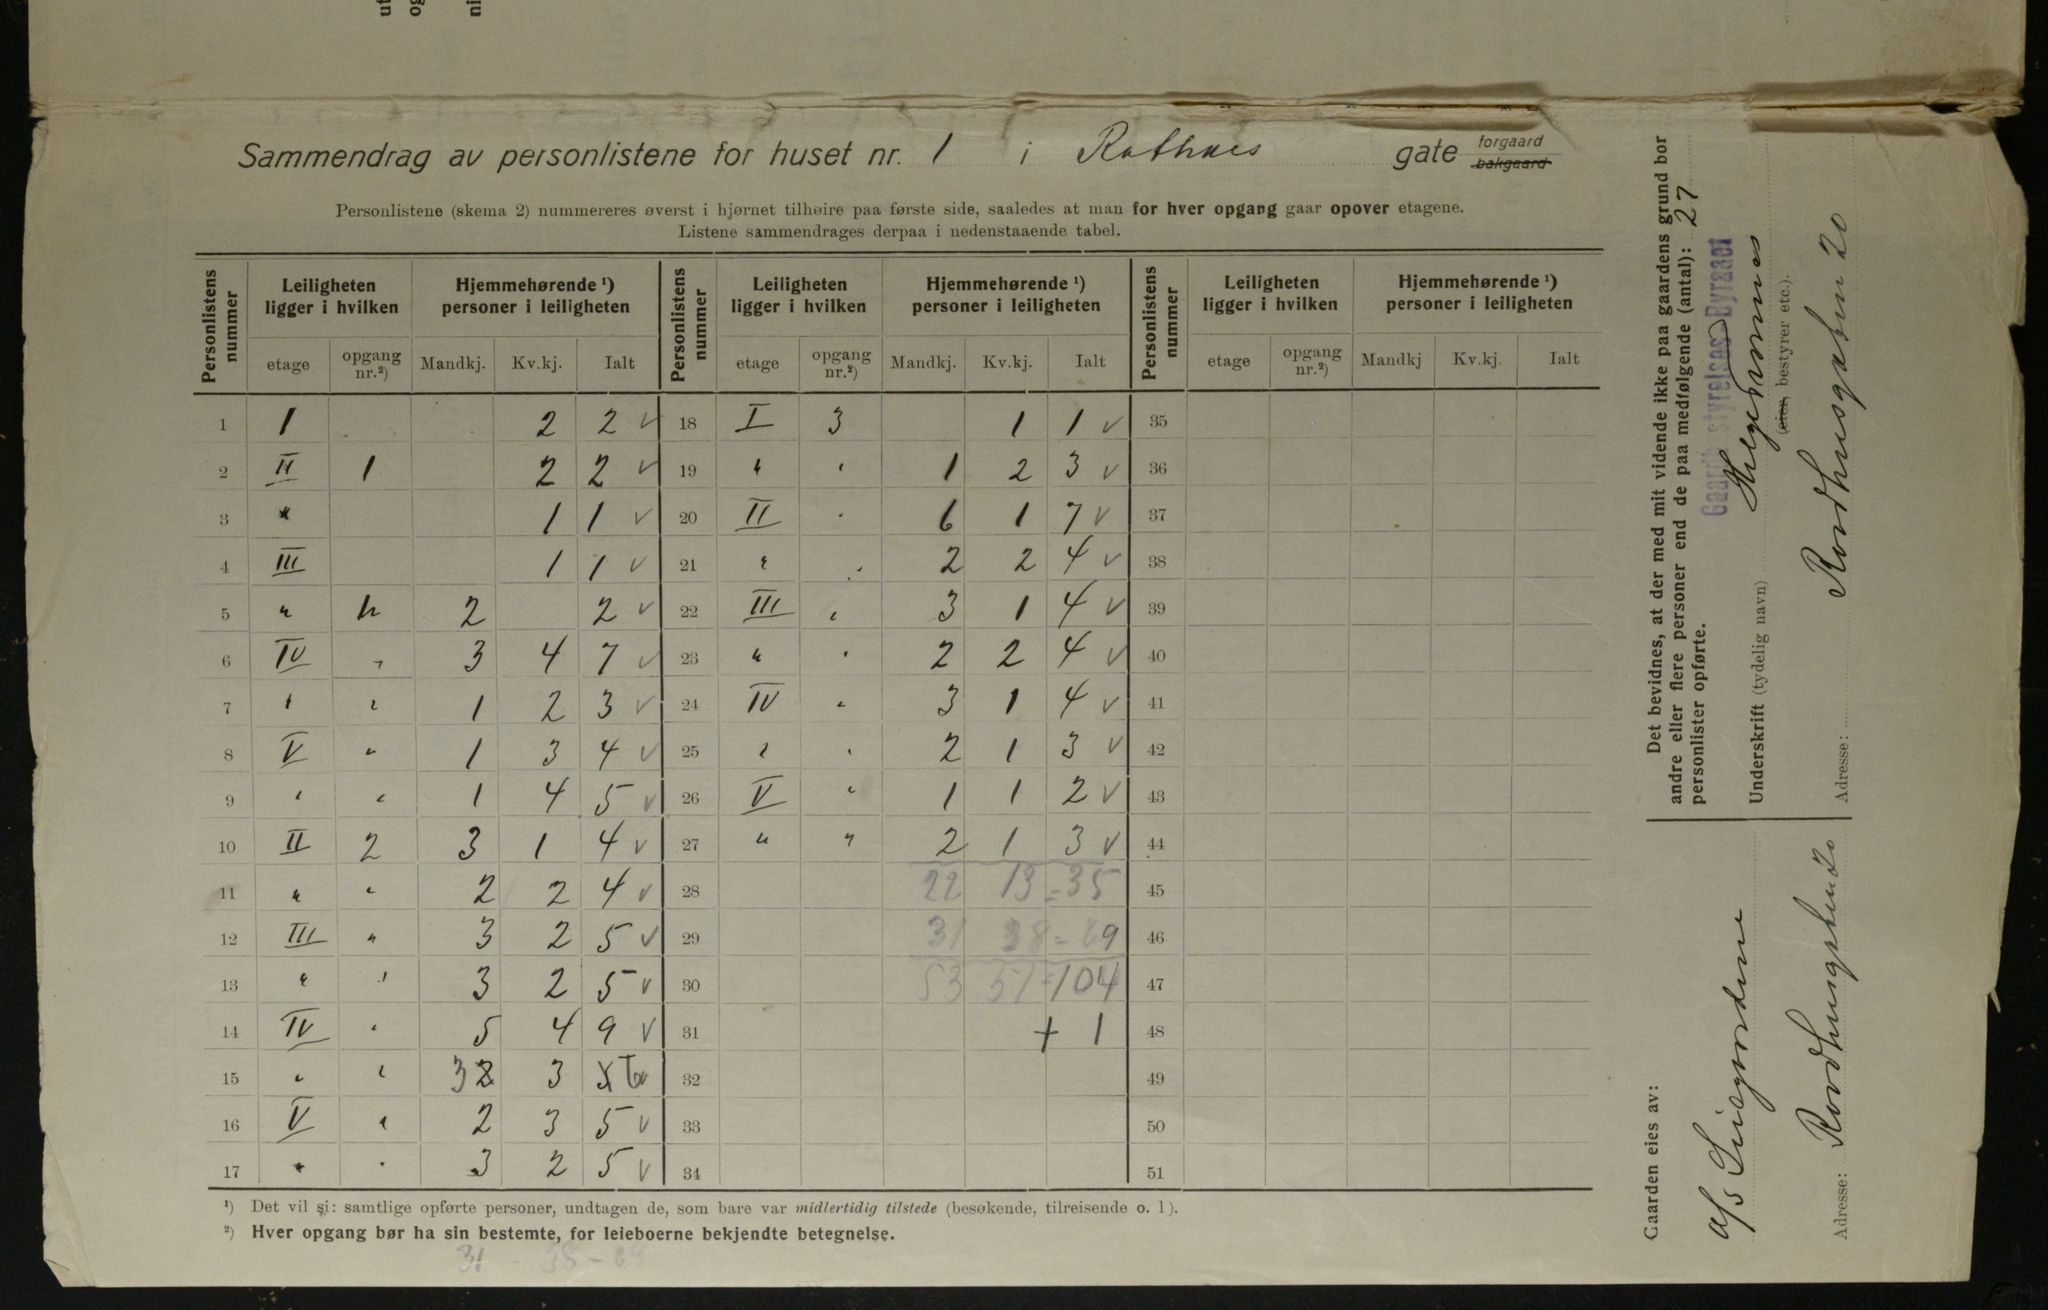 Sammendrag av personlistene for huset nr. 1 i Rathus gate forgaard bakgaard
Personlistene (skema 2) nummereres øverst i hjørnet tilhøire paa første side, saaledes at man for hver opgang gaar opover etagene.
Listene sammendrages derpaa i nedenstaaende tabel.
Personlistens nummer Leiligheten ligger i hvilken Hjemmehørende ¹) personer i leiligheten Personlistens nummer Leiligheten ligger i hvilken Hjemmehørende ¹) personer i leiligheten Personlistens nummer Leiligheten ligger i hvilken Hjemmehørende ¹) personer i leiligheten
etage opgang nr.²) Mandkj. Kv.kj. Ialt etage opgang nr.²) Mandkj. Kv.kj. Ialt etage opgang nr.²) Mandkj Kv.kj. Ialt
1 I 2 2 v 18 I 3 1 1 v 35
2 II 1 2 2 v 19 " " 1 2 3 v 36
3 " 1 1 v 20 II " 6 1 7 v 37
4 III 1 1 v 21 " " 2 2 4 v 38
5 " " 2 2 v 22 III " 3 1 4 v 39
6 IV " 3 4 7 v 23 " " 2 2 4 v 40
7 " " 1 2 3 v 24 IV " 3 1 4 v 41
8 V " 1 3 4 v 25 " " 2 1 3 v 42
9 " " 1 4 5 v 26 V " 1 1 2 v 43
10 II 2 3 1 4 v 27 " " 2 1 3 v 44
11 " " 2 2 4 v 28 22 13 = 35 45
12 III " 3 2 5 v 29 31 38 = 69 46
13 " " 3 2 5 v 30 53 51 = 104 47
14 IV " 5 4 9 v 31 + 1 48
15 " " 3 2 3 5 6 v 32 49
16 V " 2 3 5 v 33 50
17 " " 3 2 5 v 34 51
¹) Det vil si: samtlige opførte personer, undtagen de, som bare var midlertidig tilstede (besøkende, tilreisende o. l).
²) Hver opgang bør ha sin bestemte, for leieboerne bekjendte betegnelse.
31 - 38 - 69
Det bevidnes, at der med mit vidende ikke paa gaardens grund bor
andre eller flere personer end de paa medfølgende (antal): 27
personlister opførte.
Gaardbestyrelses-Byraaet
Underskrift (tydelig navn)
(eier, bestyrer etc.).
Adresse: Raadhusgaten 20
Gaarden eies av:
Adresse: Raadhusgaten 20